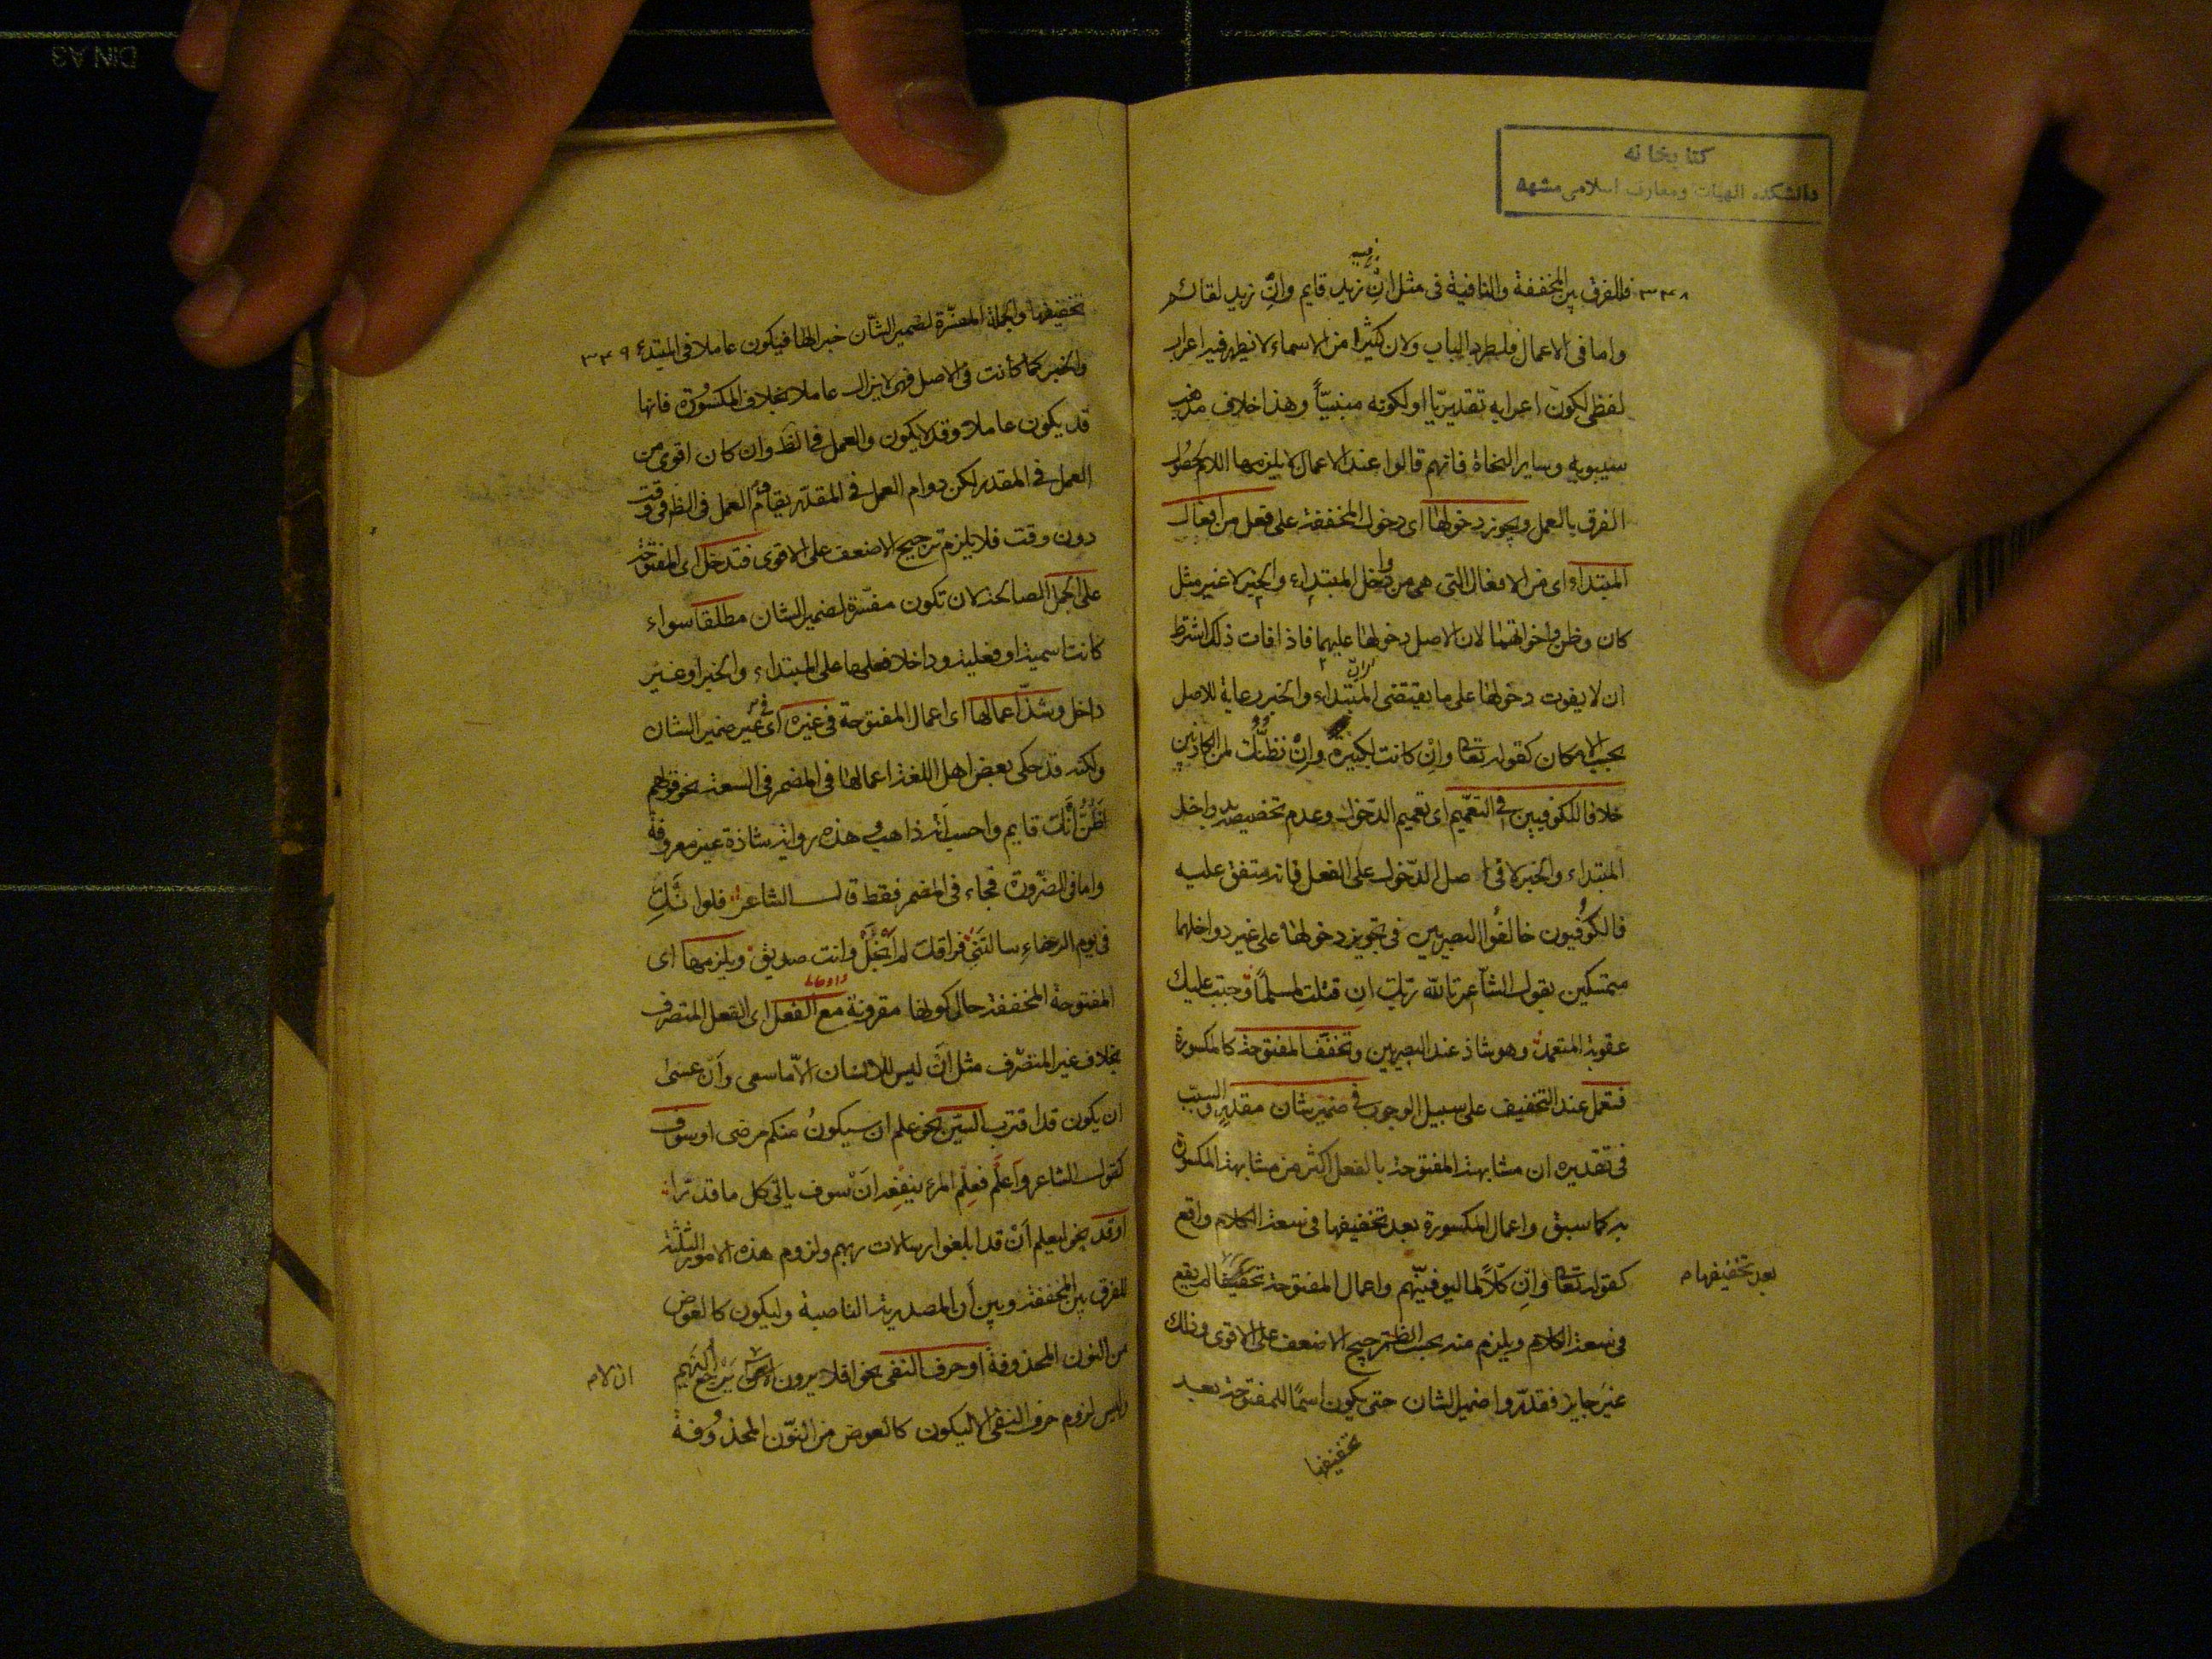 كتابخانه
دانشكده الهيات ومعارف اسلامى مشهد
٣٣٨
فللفرق بين المخففة والنافية فى مثل ان زيد قايم وانّ زيد لقائم
واما فى الاعمال فلطرد الباب ولان كثيرا من الاسماء لا يظهر فيه اعراب
لفظى لكون اعرابه تقديريّا او لكونه مبنيّاً وهذا خلاف مذهب
سيبويه وساير النحاة فانهم قالوا عند الاعمال لا يلزمها اللام لحصول
الفرق بالعمل ويجوز دخولها اى دخول المخففة على فعل من افعال
المبتداء اى من الافعال التى هى من دواخل المبتداء والخبر لا غير مثل
كان وظن واخواتهما لان الاصل دخولها عليهما فاذا فات ذلك اشترط
ان لا يفوت دخولها على ما يقتضى المبتداء والخبر رعاية للاصل
بحسب الامكان كقوله تعالى وانْ كانت لكبيرة وانْ نظنّك لمن الكاذبين
خلافا للكوفيين فى التعميم اى تعميم الدخول وعدم تخصيصه بدواخل
المبتداء والخبر لا فى اصل الدّخول على الفعل فانه متفق عليه
فالكوفيون خالفوا البصريين فى تجويز دخولها على غير دواخلهما
متمسكين بقول الشاعر تالله ربّك ان قتلت لمسلماً وجبت عليك
عقوبة المتعمد وهو شاذ عند البصريين وتخفف المفتوحة كالمكسورة
فتعمل عند التخفيف على سبيل الوجوب فى ضمير شان مقدر والسبب
فى تقديره ان مشابهة المفتوحة بالفعل اكثر من مشابهة المكسورة
به كما سبق واعمال المكسورة بعد تخفيفها فى سعة الكلام واقع
كقوله تعالى وانّ كلّاً لما ليوفينّهم واعمال المفتوحة تخفيفها لم يقع
بعد تخفيفها م
فى سعة الكلام ويلزم منه بحسب الظ ترجيح الاضعف على الاقوى وذلك
غير جايز فقدّروا ضمير الشان حتى يكون اسمًا للمفتوحة بعد
تخفيفها
تخفيفها والجملة المفسّرة لضمير الشّان خبرا لها فيكون عاملا فى المبتدء
٣٣٩
والخبر كما كانت فى الاصل فهى لا يزال عاملا بخلاف المكسورة فانها
قد يكون عاملا وقد لا يكون والعمل فى الظ وان كان اقوى من
العمل فى المقدر لكن دوام العمل فى المقدّر يقاوم العمل فى الظ فى وقت
دون وقت فلا يلزم ترجيح الاضعف على الاقوى فتدخل اى المفتوحة
على الجمل الصالحة لان تكون مفسّرة لضمير الشان مطلقا سواء
كانت اسمية او فعلية وداخلا فعلها على المبتداء والخبر او غير
داخل وشذّ اعمالها اى اعمال المفتوحة فى غيره اى فى غير ضمير الشان
ولكنه قد حكى بعض اهل اللغة اعمالها فى المضمر فى السعة نحو قولهم
اظنّ انّك قايم واحسب انه ذاهب وهذه رواية شاذة غير معروفة
واما فى الضرورة فجاء فى المضمر فقط قال الشاعر فلو انّكِ
فى يوم الرخاءِ سالتنى فراقك لم ابخل وانت صديق ويلزمها اى
المفتوحة المخففة حال كونها مقرونة مع الفعل اى الفعل المتصرف
بخلاف غير المنصّرف مثل انْ ليس للانسان الّا ما سعى وانْ عسى
ان يكون قد اقترب السّين نحو علم ان سيكونُ منكم مرضى او سوف
كقول الشاعر واعلم فعلم المرء ينفعه انْ سوف ياتى كل ما قدرا
او قد نحو ليعلم انْ قد ابلغوا رسالات ربهم ولزوم هذه الامور الثلثة
للفرق بين المخففة وبين أن المصدرية الناصبة وليكون كالعوض
من النون المحذوفة او حرف النفى نحو افلا يرون ان لا يرجع اليهم
ان لا م
وليس لزوم حرف النفى الا ليكون كالعوض من النّون المحذوفة